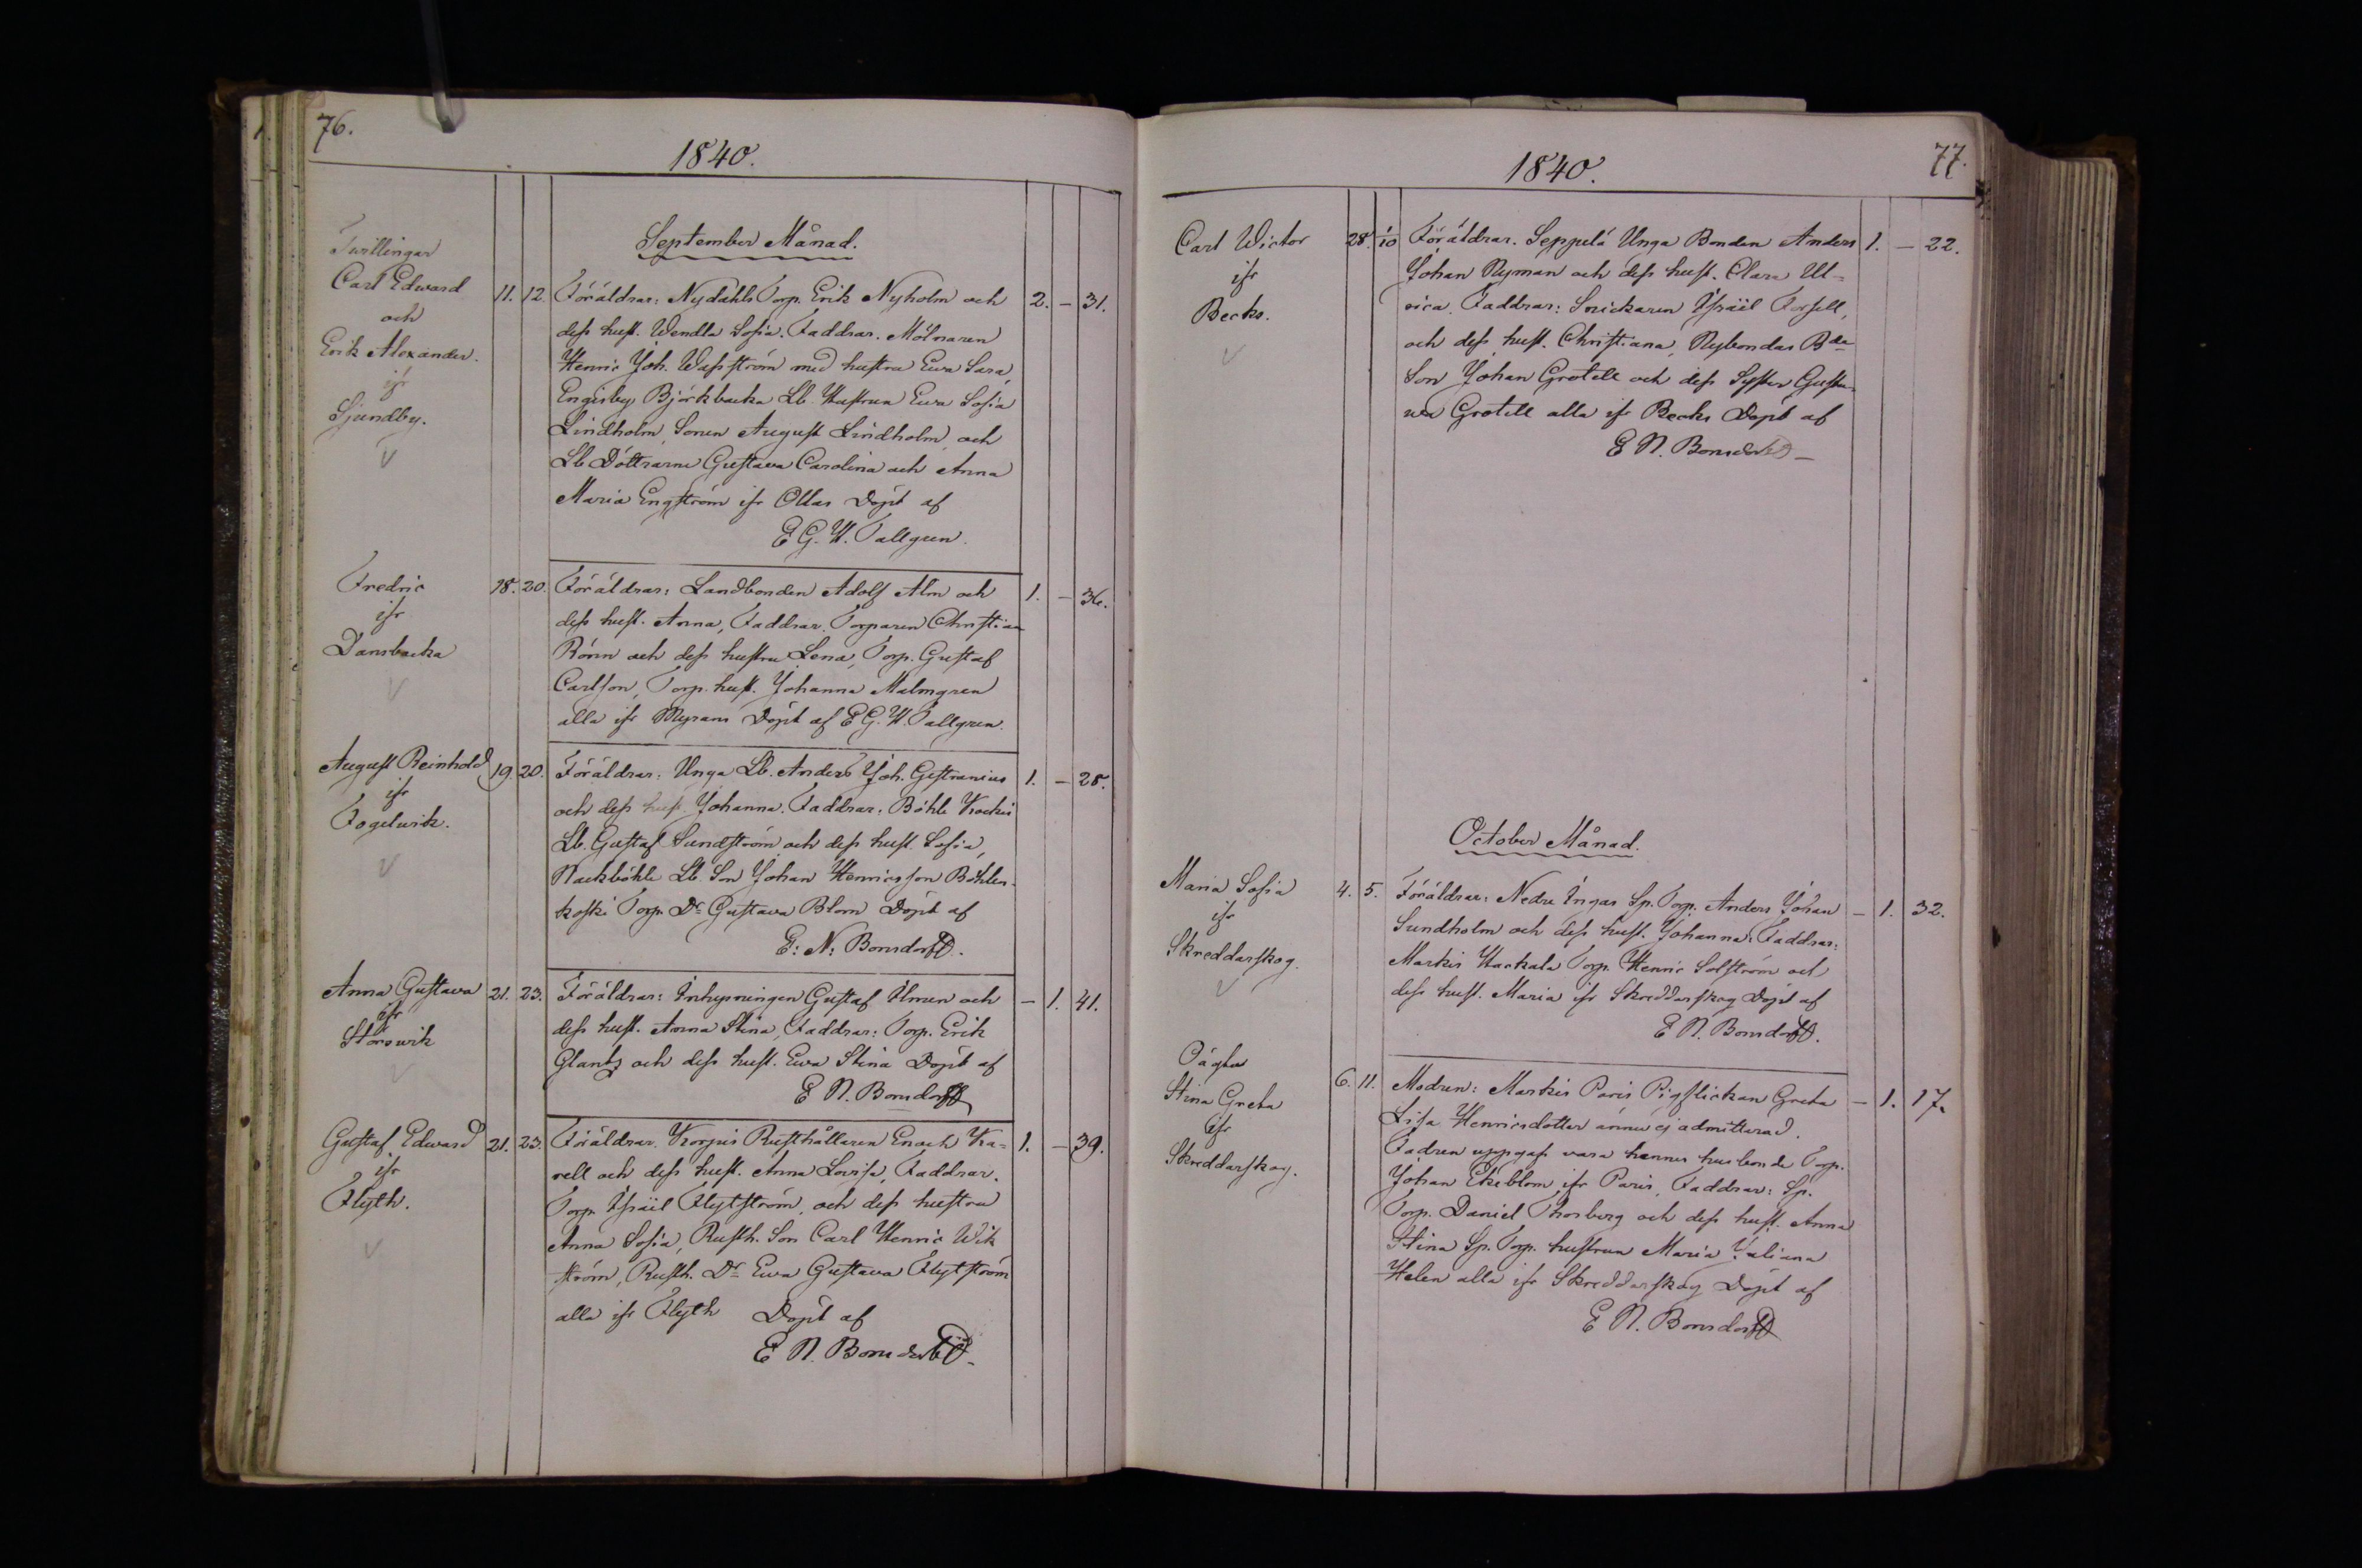 76.
1840.
September Månad.
Twillingar
Carl Edward
och
Erik Alexander.
ifr
Sjundby.
11. 12. Föräldrar: Nydahls Torp. Erik Nyholm och 2. — 31.
dess hust. Wendla Sofia. Faddrar. Mölnaren
Henric Joh. Wasström med hustru Ewa Sara,
Engisby Björkbacka Lb. Hustrun Ewa Sofia
Lindholm, Sonen August Lindholm och
Lb Döttrarne Gustava Carolina och Anna
Maria Engström ifr Ollas Döpt af
E G. W. Tallgren.
Fredric
ifr
Dansbacka
18. 20. Föräldrar: Landbonden Adolf Alm och 1. — 36.
dess hust. Anna, Faddrar. Torparen Christian
Rönn och dess hustru Lena, Torp. Gustaf
Carlson, Torp. hust. Johanna Malmgren
alla ifr Myrans Döpt af E G. W. Tallgren.
August Reinhold
ifr
Fogelwik.
19. 20. Föräldrar: Unga Lb. Anders Joh. Gestranius 1. — 28.
och dess hust Johanna. Faddrar: Böhle Krockis
Lb. Gustaf Sundström och dess hust. Sofia,
Nackböhle Lb. Son Johan Henricsson Böhles
koski Torp. Dr Gustava Blom Döpt af
E: N: Bonsdorff.
Anna Gustava
ifr
Storswik
21. 23. Föräldrar: Inhysningen Gustaf Ilmen och — 1. 41.
dess hust. Anna Stina, Faddrar: Torp. Erik
Glantz och dess hust. Ewa Stina Döpt af
E N. Bonsdorff
Gustaf Edward
ifr
Flyth.
21. 23. Föräldrar. Korpis Rusthållaren Enoch Ka-
1. — 39.
rell och dess hust. Anna Lovisa, Faddrar.
Torp. Israël Flytström, och dess hustru
Anna Sofia, Rusth. Son Carl Henric Wik
ström, Rusth. Dr Ewa Gustava Flytström
alla ifr Flyth Döpt af
E N. Bonsdorff.
77.
1840.
Carl Wictor
ifr
Becks.
28. 10 Föräldrar. Seppelä Unga Bonden Anders 1. — 22.
Johan Nyman och dess hust. Clara Ul-
rica. Faddrar: Snickaren Israël Forsell,
och dess hust. Christiana, Nybondas Bde
Son Johan Grotell och dess Syster Gusta-
va Grotell alla ifr Becks Döpt af
E N. Bonsdorff
October Månad.
Maria Sofia
ifr
Skreddarskog.
4. 5. Föräldrar: Nedre Ingas Sp. Torp. Anders Johan — 1. 32.
Sundholm och dess hust. Johanna: Faddrar:
Markis Hackala Torp. Henric Solström och
dess hust. Maria ifr Skreddarskog Döpt af
E N. Bonsdorff.
Oägta
Stina Greta
ifr
Skreddarskog.
6. 11. Modren: Markis Paris Pigflickan Greta — 1. 17.
Lisa Henricsdotter ännu ej admitterad.
Fadren uppgafs vara hennes husbonde Torp.
Johan Ekeblom ifr Paris, Faddrar: Sp.
Torp. Daniel Thorsberg och dess hust. Anna
Stina Sp. Torp. hustrun Maria Juliana
Helen alla ifr Skreddarskog Döpt af
E N. Bonsdorff